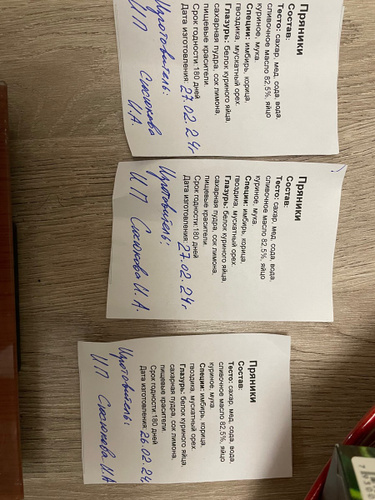 Пряники
Состав:
Тесто: сахар, мед, сода, вода,
сливочное масло 82,5%, яйцо
куриное, мука.
Специи: имбирь, корица,
гвоздика, мускатный орех.
Глазурь: белок куриного яйца,
сахарная пудра, сок лимона,
пищевые красители.
Срок годности:180 дней
Дата изготовления: 27.02.24г.
Изготовитель:
ИП
И.А.
Пряники
Состав:
Тесто: сахар, мед, сода, вода,
сливочное масло 82,5%, яйцо
куриное, мука.
Специи: имбирь, корица,
гвоздика, мускатный орех.
Глазурь: белок куриного яйца,
сахарная пудра, сок лимона,
пищевые красители.
Срок годности:180 дней
Дата изготовления: 27.02.24г
Изготовитель:
ИП И.А.
Пряники
Состав:
Тесто: сахар, мед, сода, вода,
сливочное масло 82,5%, яйцо
куриное, мука.
Специи: имбирь, корица,
гвоздика, мускатный орех.
Глазурь: белок куриного яйца,
сахарная пудра, сок лимона,
пищевые красители.
Срок годности:180 дней
Дата изготовления: 26.02.24г
Изготовитель:
ИП И.А.